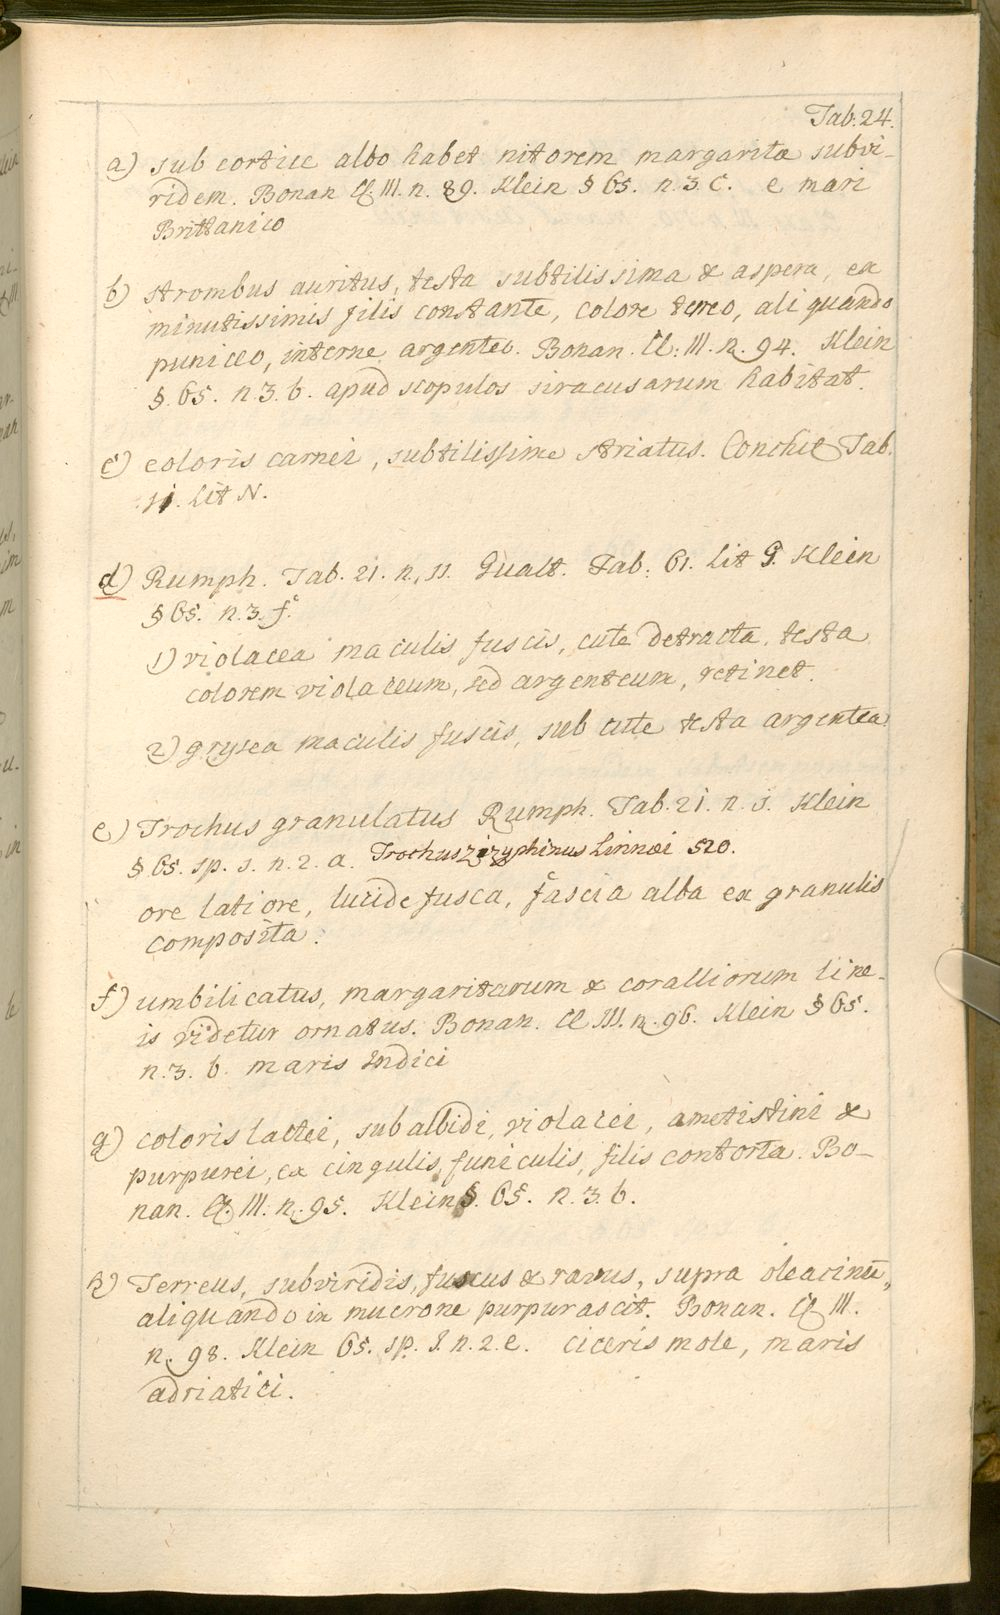 Tab. 24.
a) sub cortice albo habet nitorem margaritæ subvi-
ridem. Bonan Cl. III. n. 89. Klein § 65. n. 3. c. e mari
Brittanico
b) strombus auritus, testa subtilissima & aspera, ex
minutissimis filis constante, colore tereo, aliquando
puniceo, interne argenteo. Bonan. Cl: III. n. 94. Klein
§. 65. n. 3. b. apud scopulos siracusarum habitat.
c) coloris carnei, subtilissime striatus. Tab.
Lit N.
d) Rumph. Tab. 21. n. 11. Gualt. Tab. 61. Lit G. Klein
§ 65. n. 3. f.
1) violacea maculis fuscis, cute detracta, testa
colorem violaceum, sed argenteum, retinet.
2) grysea maculis fuscis, sub cute testa argentea
e) Trochus granulatus Rumph. Tab. 21. n. 1. Klein
§ 65. sp. 1. n. 2. a. Trochus zizyphinus Linnæi 520.
ore latiore, lucide fusca, fascia alba ex granulis
composita.
f) umbilicatus, margaritarum & coralliorum line-
is videtur ornatus. Bonan. Cl III. n. 96. Klein § 65.
n. 3. b. maris Indici
g) coloris lactei, subalbidi, violacei, ametistini &
purpurei, ex cingulis, funiculis, filis contorta. Bo-
nan. Cl. III. n. 95. Klein §. 65. n. 3. b.
h) Terreus, subviridis, fuscus & ravus, supra
aliquando in mucrone purpurascit. Bonan. Cl III.
n. 98. Klein 65. sp. 1. n. 2. e. ciceris mole, maris
adriatici.